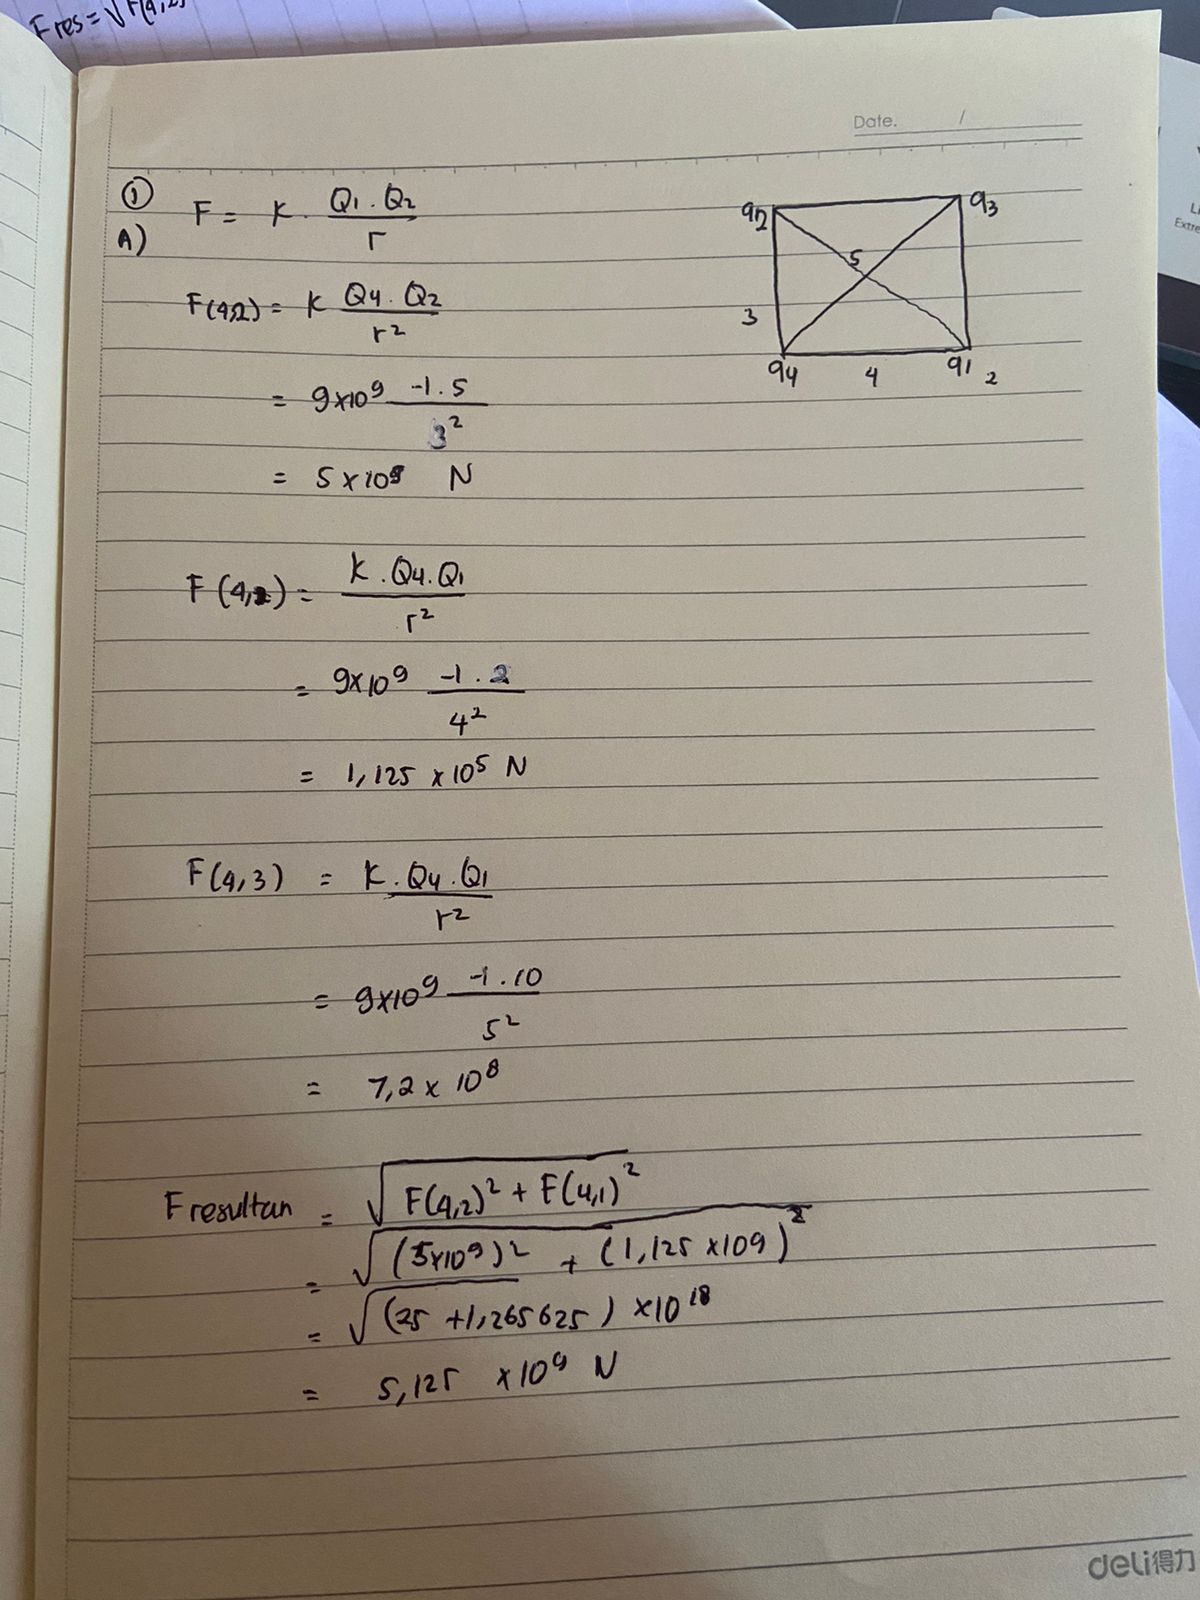 F res = √F(4,2)
Date. /
① F = K . Q1 . Q2 / r
A)
q2 q3
5
3
q4 4 q1 2
F(4,2) = K Q4 . Q2 / r²
= 9x10⁹ -1 . 5 / 3²
= 5 x 10⁹ N
F(4,2) = K . Q4 . Q1 / r²
= 9x10⁹ -1 . 2 / 4²
= 1,125 x 10⁵ N
F(4,3) = K . Q4 . Q1 / r²
= 9x10⁹ -1 . 10 / 5²
= 7,2 x 10⁸
F resultan = √F(4,2)² + F(4,1)²
= √(5x10⁹)² + (1,125 x109)²
= √(25 + 1,265625) x10¹⁸
= 5,125 x10⁹ N
deli得力